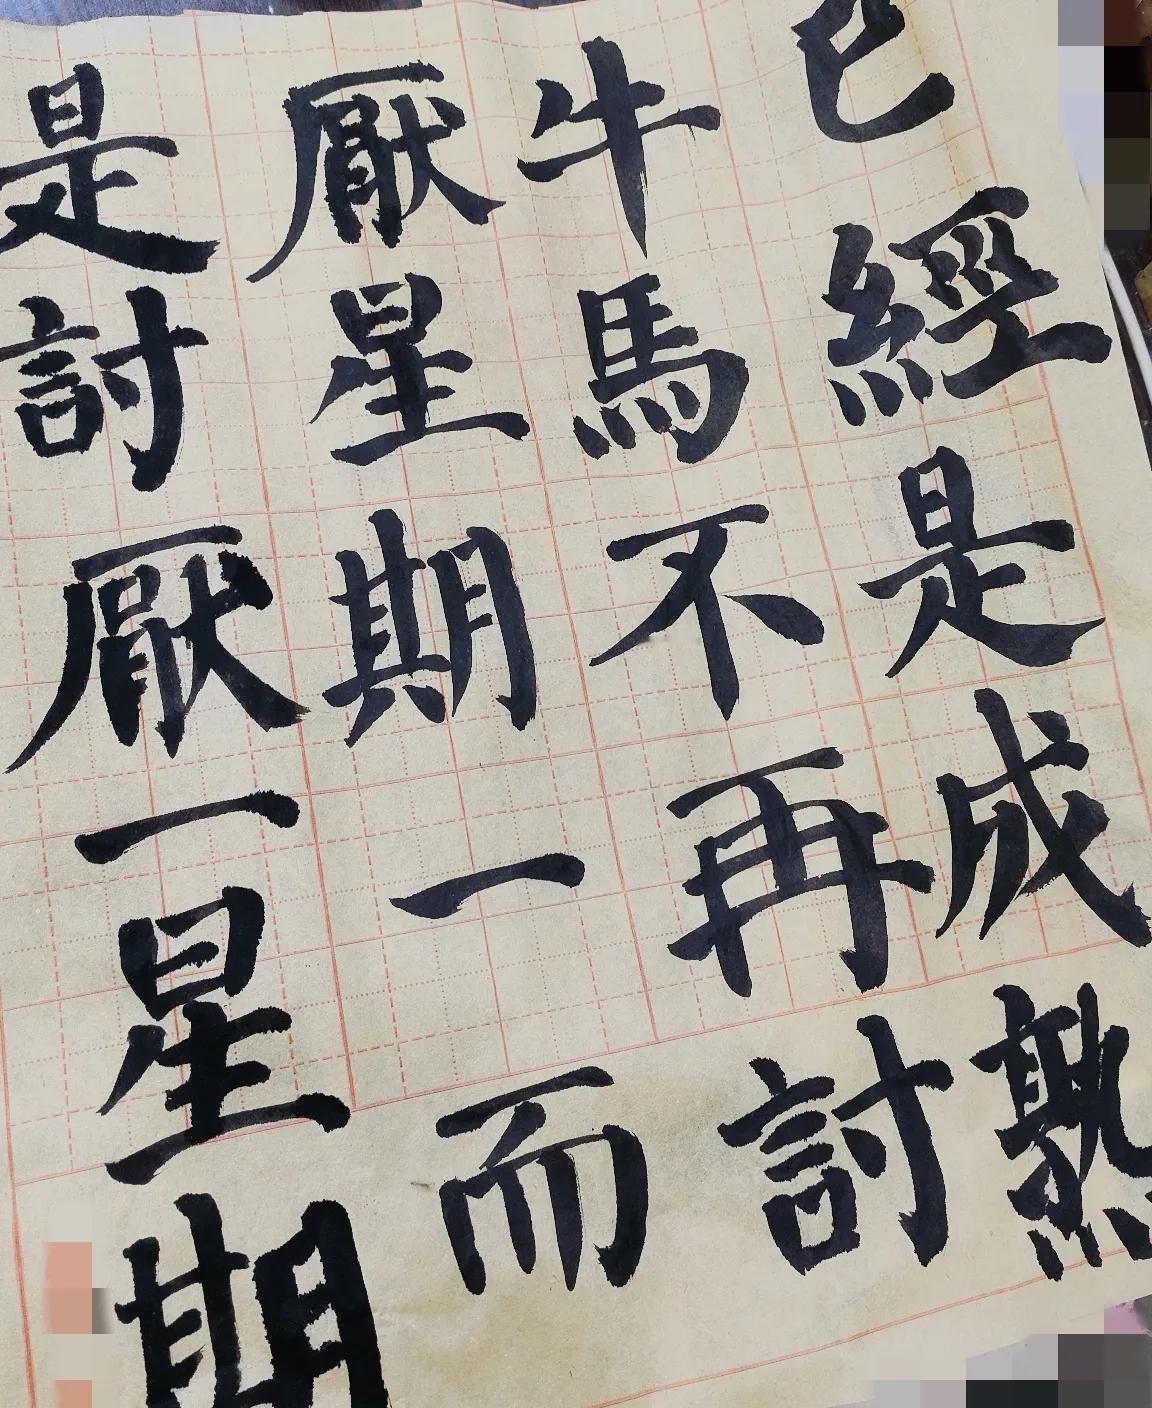 已經是成熟
牛馬不再討
厭星期一而
是討厭一星期